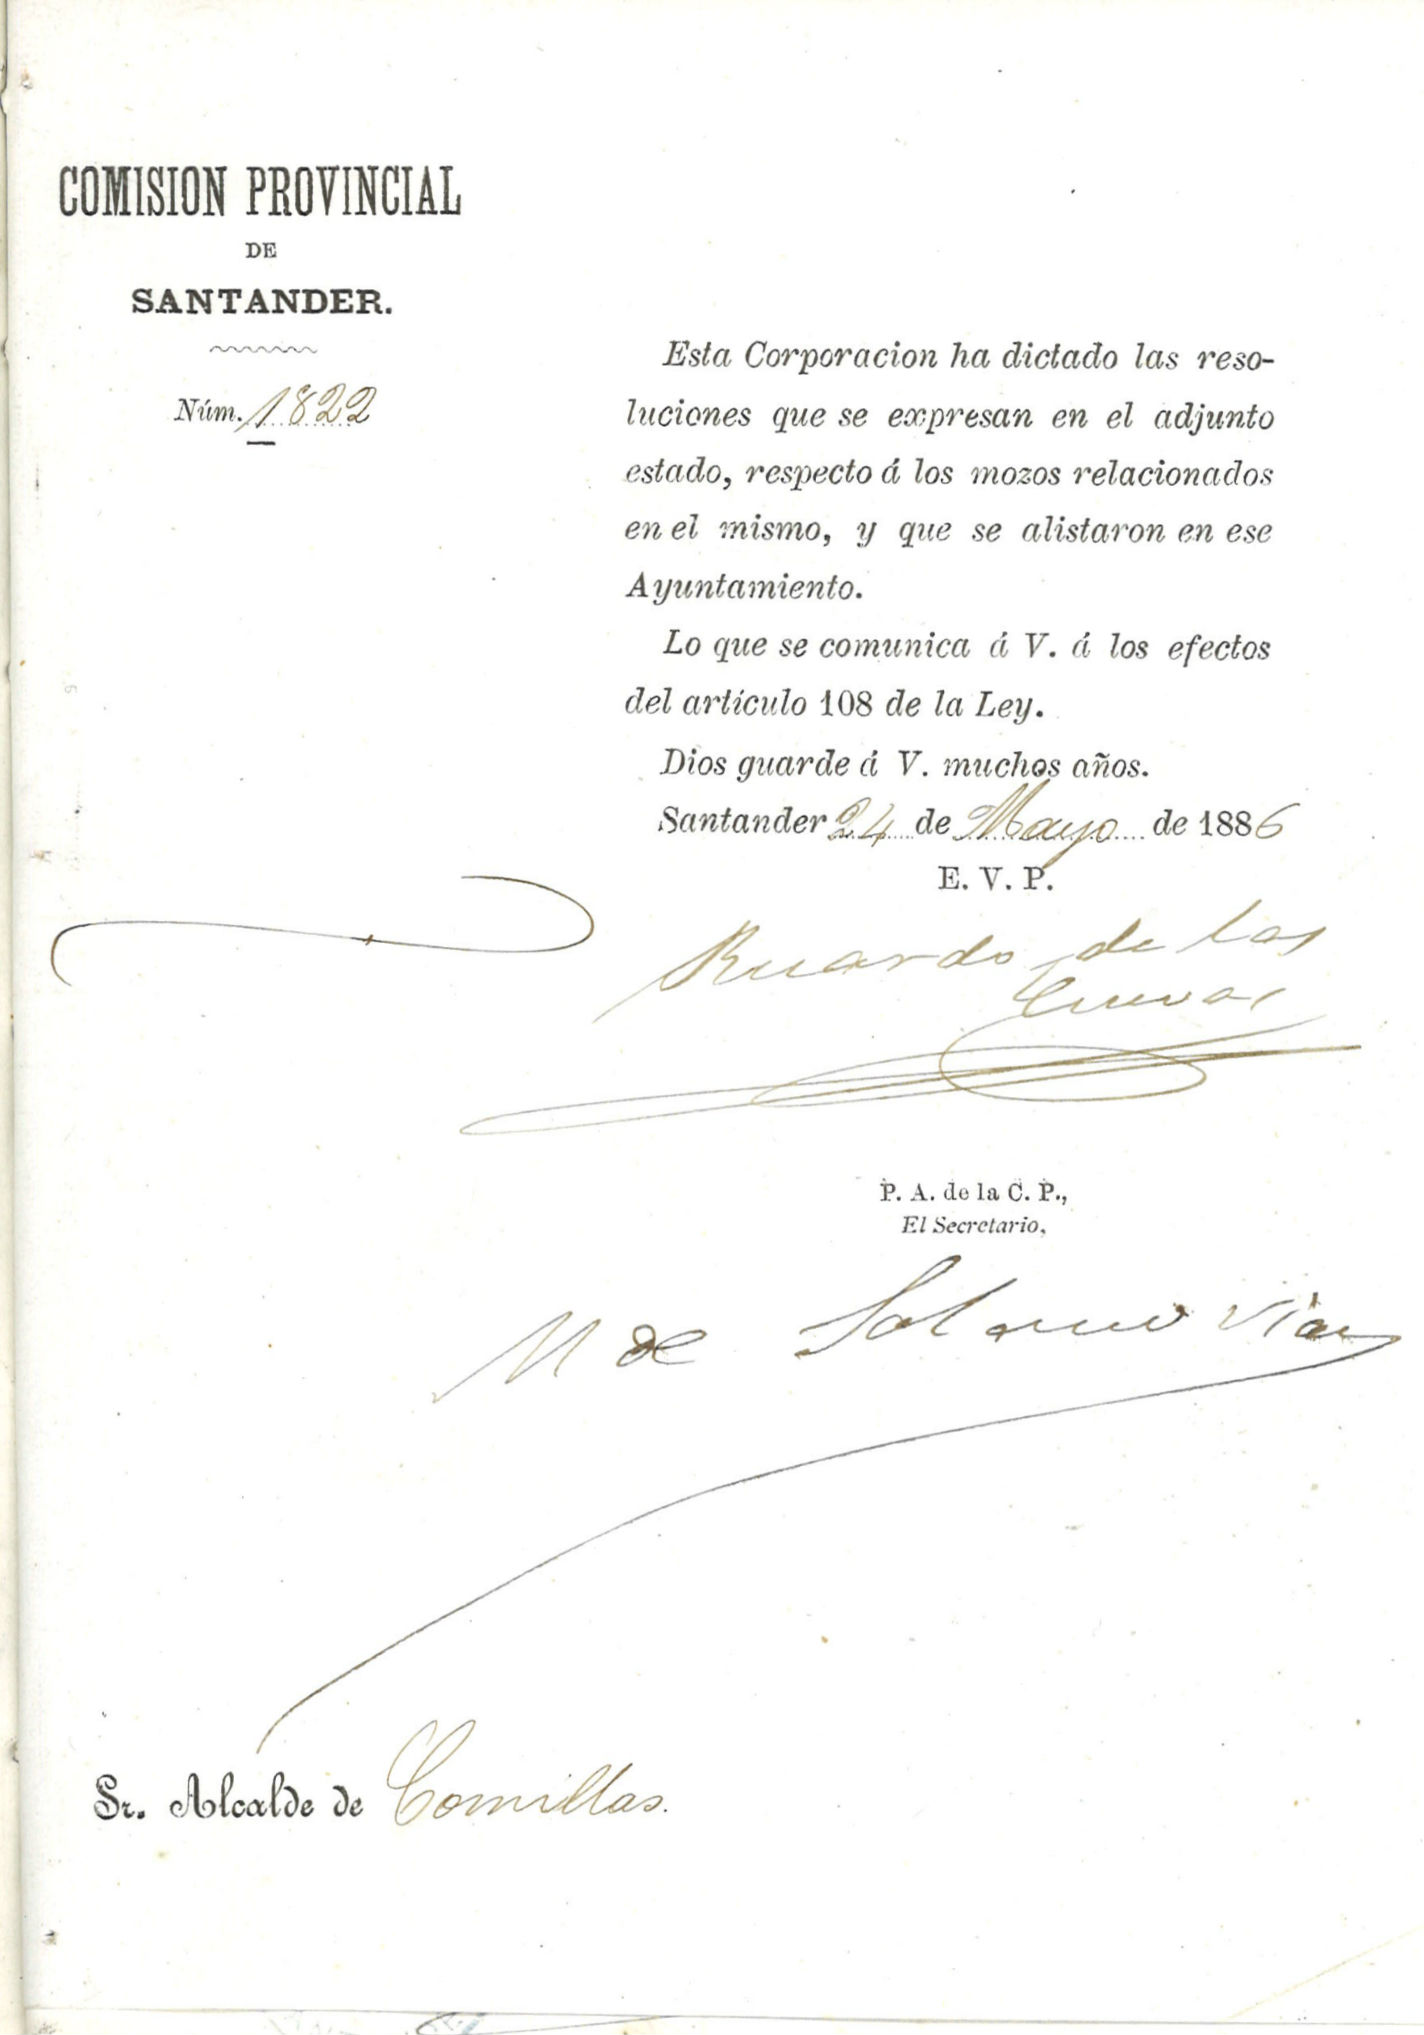 COMISION PROVINCIAL
DE
SANTANDER.
Núm. 1822
Esta Corporacion ha dictado las reso-
luciones que se expresan en el adjunto
estado, respecto á los mozos relacionados
en el mismo, y que se alistaron en ese
Ayuntamiento.
Lo que se comunica á V. á los efectos
del artículo 108 de la Ley.
Dios guarde á V. muchos años.
Santander 24 de Mayo de 1886
E. V. P.
de las
Cuevas
P. A. de la C. P.,
El Secretario,
M de Solano Vial
Sr. Alcalde de Comillas.